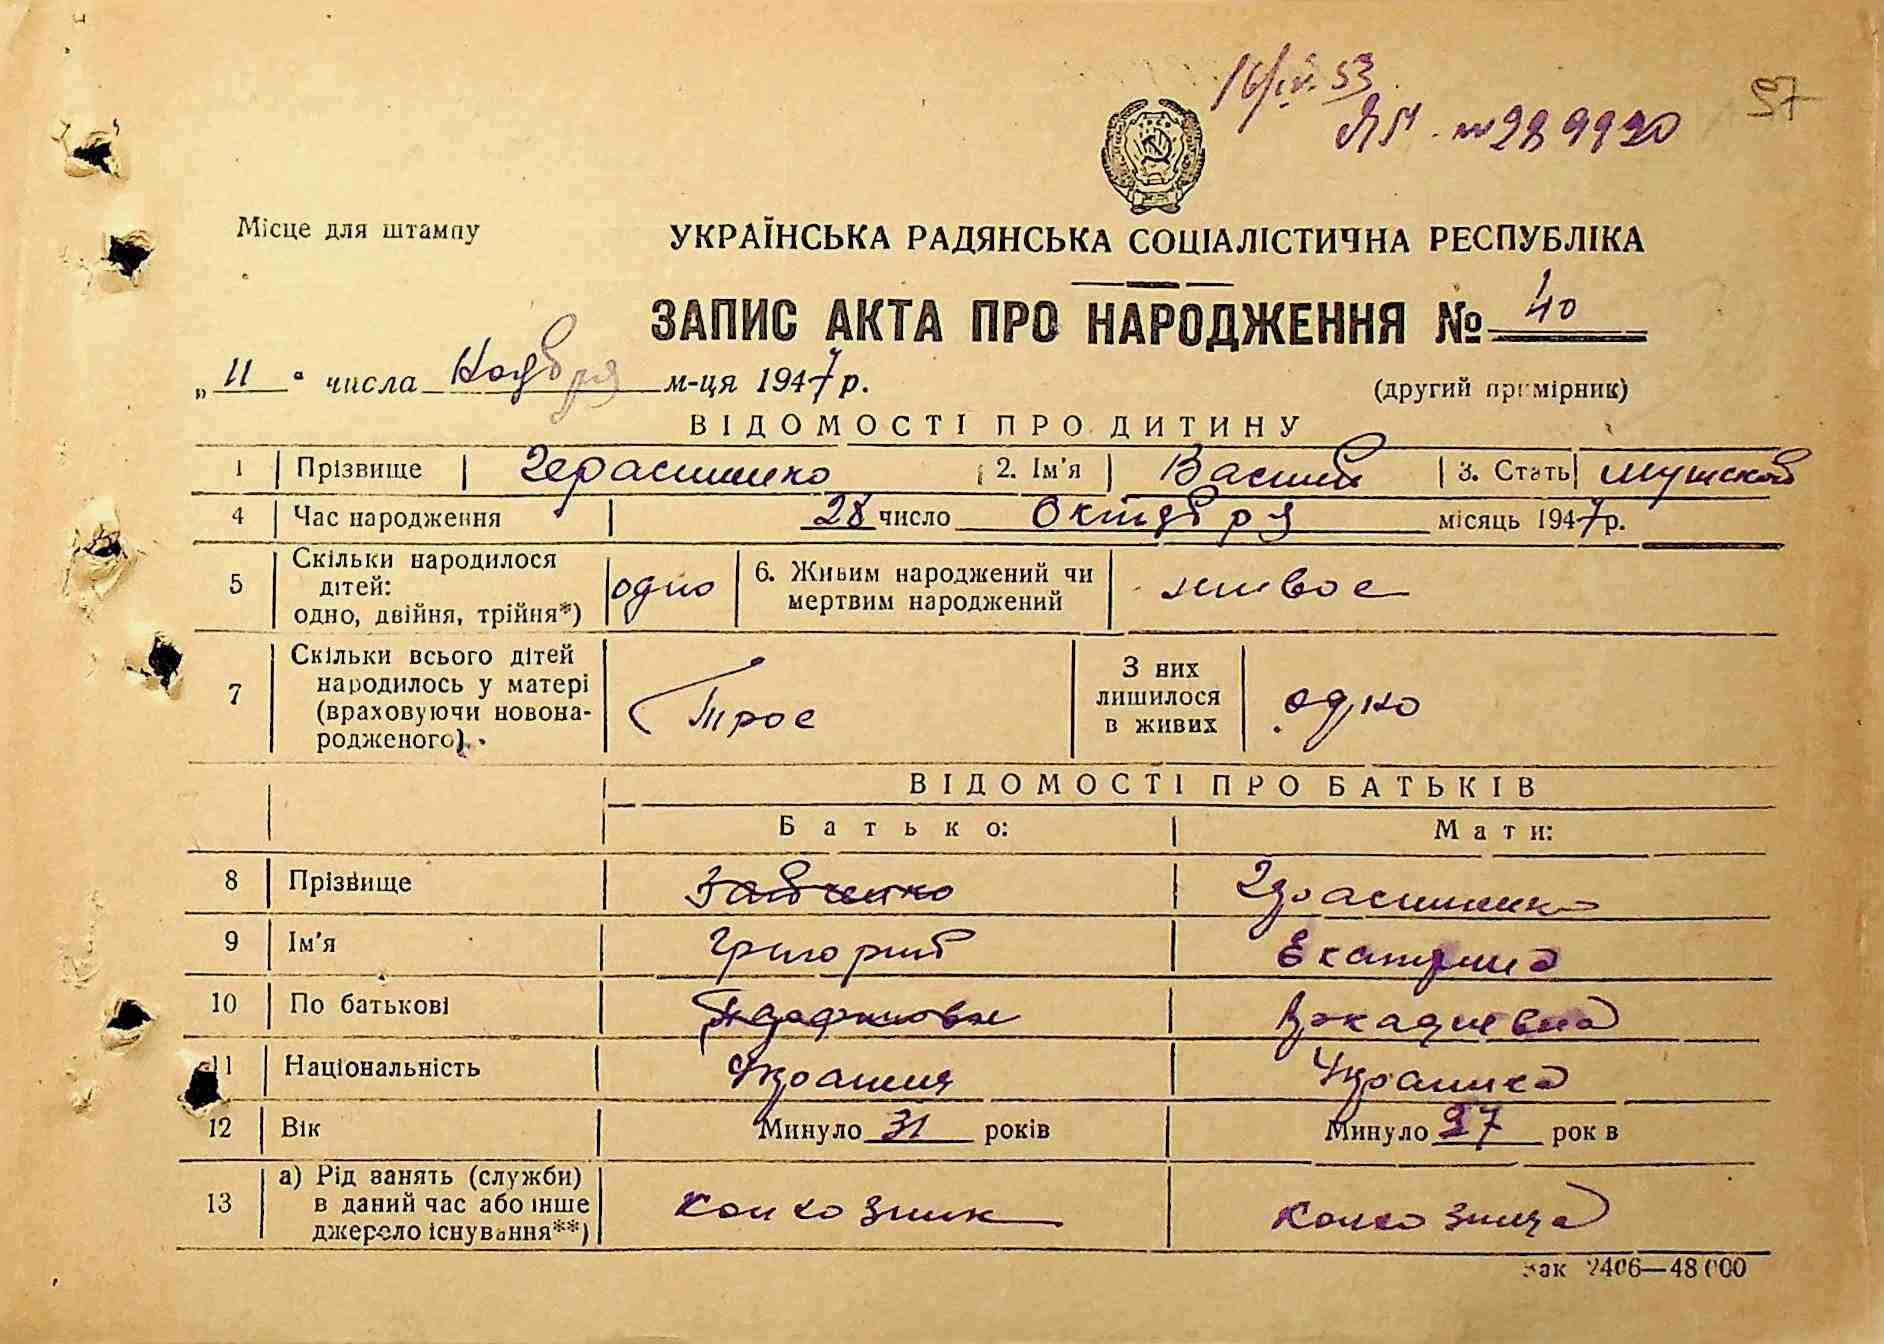 16/IV. 53
97
ЯМ - № 289920
Місце для штампу
УКРАЇНСЬКА РАДЯНСЬКА СОЦІАЛІСТИЧНА РЕСПУБЛІКА
ЗАПИС АКТА ПРО НАРОДЖЕННЯ № 40
„11“ числа Ноября м-ця 1947 р.
(другий примірник)
ВІДОМОСТІ ПРО ДИТИНУ
1 Прізвище Герасименко 2. Ім'я Василий 3. Стать мужской
4 Час народження 28 число Октября місяць 1947 р.
5 Скільки народилося дітей: одно, двійня, трійня*) одно 6. Живим народжений чи мертвим народжений живое
7 Скільки всього дітей народилось у матері (враховуючи новонародженого). Трое З них лишилося в живих одно
ВІДОМОСТІ ПРО БАТЬКІВ
Батько: Мати:
8 Прізвище Савченко Герасименко
9 Ім'я Григорий Екатерина
10 По батькові Аркадиевна
11 Національність Украинец Украинка
12 Вік Минуло 31 років Минуло 27 рок в
13 а) Рід занять (служби) в даний час або інше джерело існування**) колхозник колхозница
Зак 2406—48 000